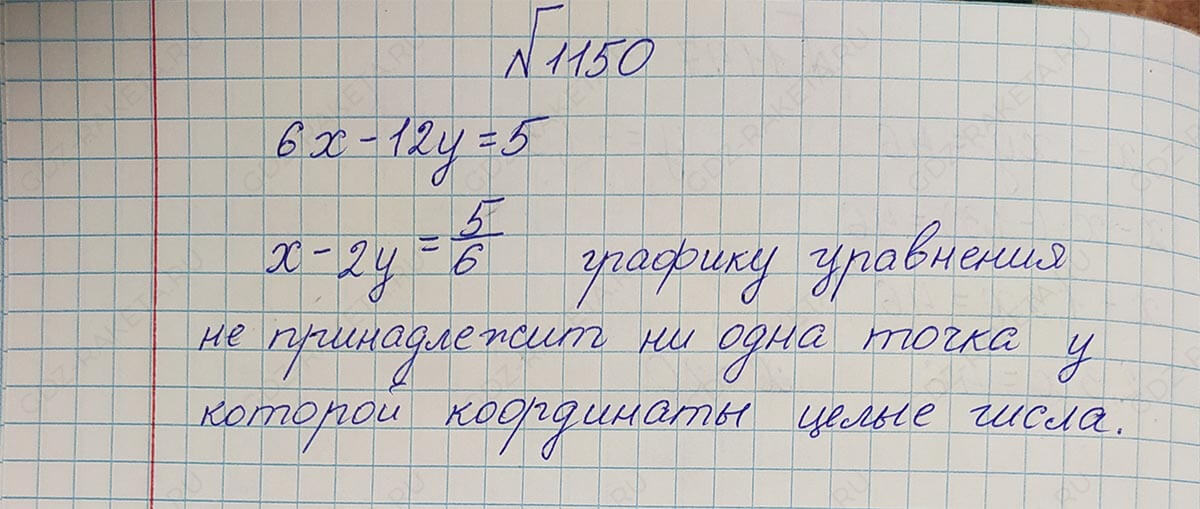 №1150
6x - 12y = 5
x - 2y = 5/6 графику уравнения
не принадлежит ни одна точка у
которой координаты целые числа.